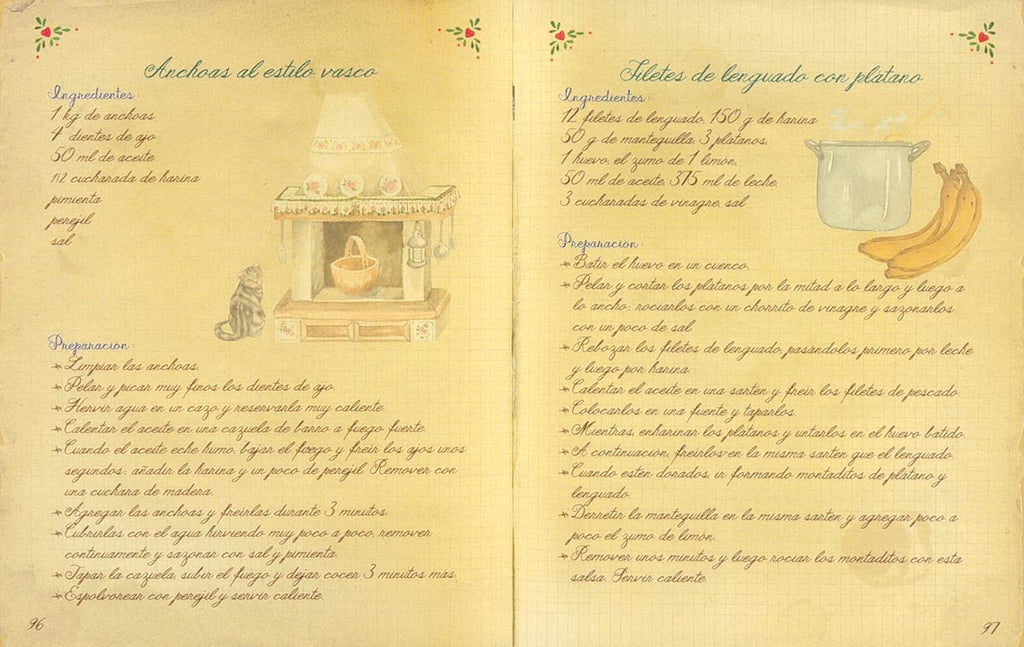 Anchoas al estilo vasco
Ingredientes:
1 kg de anchoas
4 dientes de ajo
50 ml de aceite
1/2 cucharada de harina
pimienta
perejil
sal
Preparación:
Limpiar las anchoas.
Pelar y picar muy finos los dientes de ajo.
Hervir agua en un cazo y reservarla muy caliente.
Calentar el aceite en una cazuela de barro a fuego fuerte.
Cuando el aceite eche humo, bajar el fuego y freír los ajos unos
segundos; añadir la harina y un poco de perejil. Remover con
una cuchara de madera.
Agregar las anchoas y freírlas durante 3 minutos.
Cubrirlas con el agua hirviendo muy poco a poco, remover
continuamente y sazonar con sal y pimienta.
Tapar la cazuela, subir el fuego y dejar cocer 3 minutos más.
Espolvorear con perejil y servir caliente.
96
Filetes de lenguado con plátano
Ingredientes:
12 filetes de lenguado, 150 g de harina
50 g de mantequilla, 3 plátanos,
1 huevo, el zumo de 1 limón,
50 ml de aceite, 375 ml de leche,
3 cucharadas de vinagre, sal
Preparación:
Batir el huevo en un cuenco.
Pelar y cortar los plátanos por la mitad a lo largo y luego a
lo ancho; rociarlos con un chorrito de vinagre y sazonarlos
con un poco de sal.
Rebozar los filetes de lenguado, pasándolos primero por leche
y luego por harina.
Calentar el aceite en una sartén y freír los filetes de pescado.
Colocarlos en una fuente y taparlos.
Mientras, enharinar los plátanos y untarlos en el huevo batido.
A continuación, freírlos en la misma sartén que el lenguado.
Cuando estén dorados, ir formando montaditos de plátano y
lenguado.
Derretir la mantequilla en la misma sartén y agregar poco a
poco el zumo de limón.
Remover unos minutos y luego rociar los montaditos con esta
salsa. Servir caliente.
97